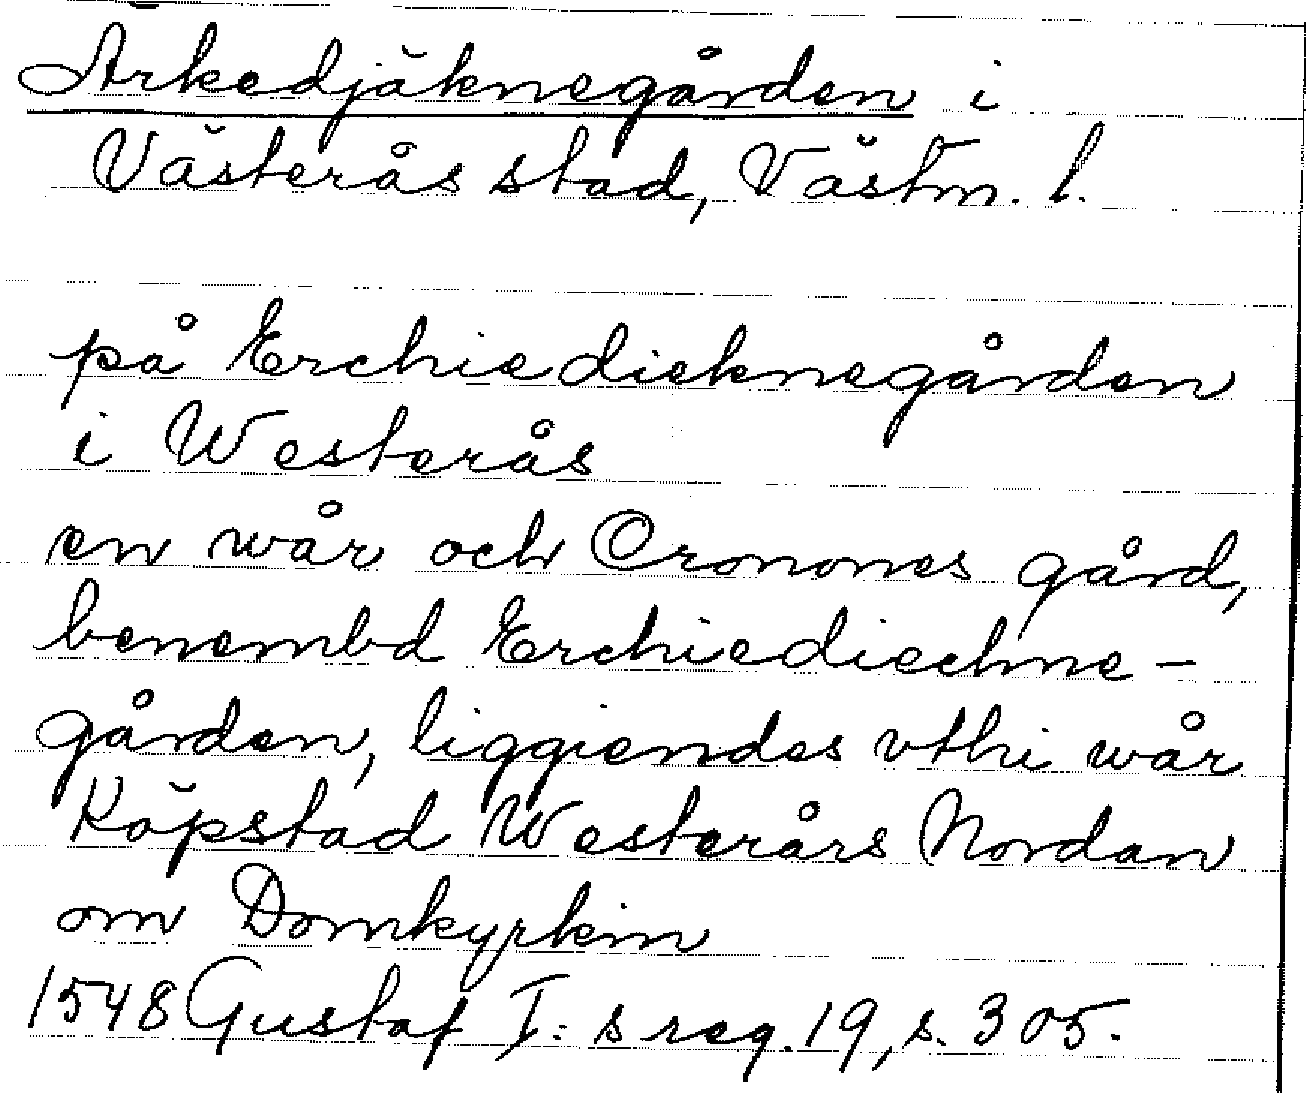 Ärkedjäknegården i
Västerås stad, Västm. l.
på Erchiedieknegården
i Westerås
en wår och Cronones gård,
benembd Erchiediechne-
gården, liggiendes vthi wår
Köpstad Westerårs Nordan
om Domkyrkin
1548 Gustaf I:s reg. 19, s. 305.